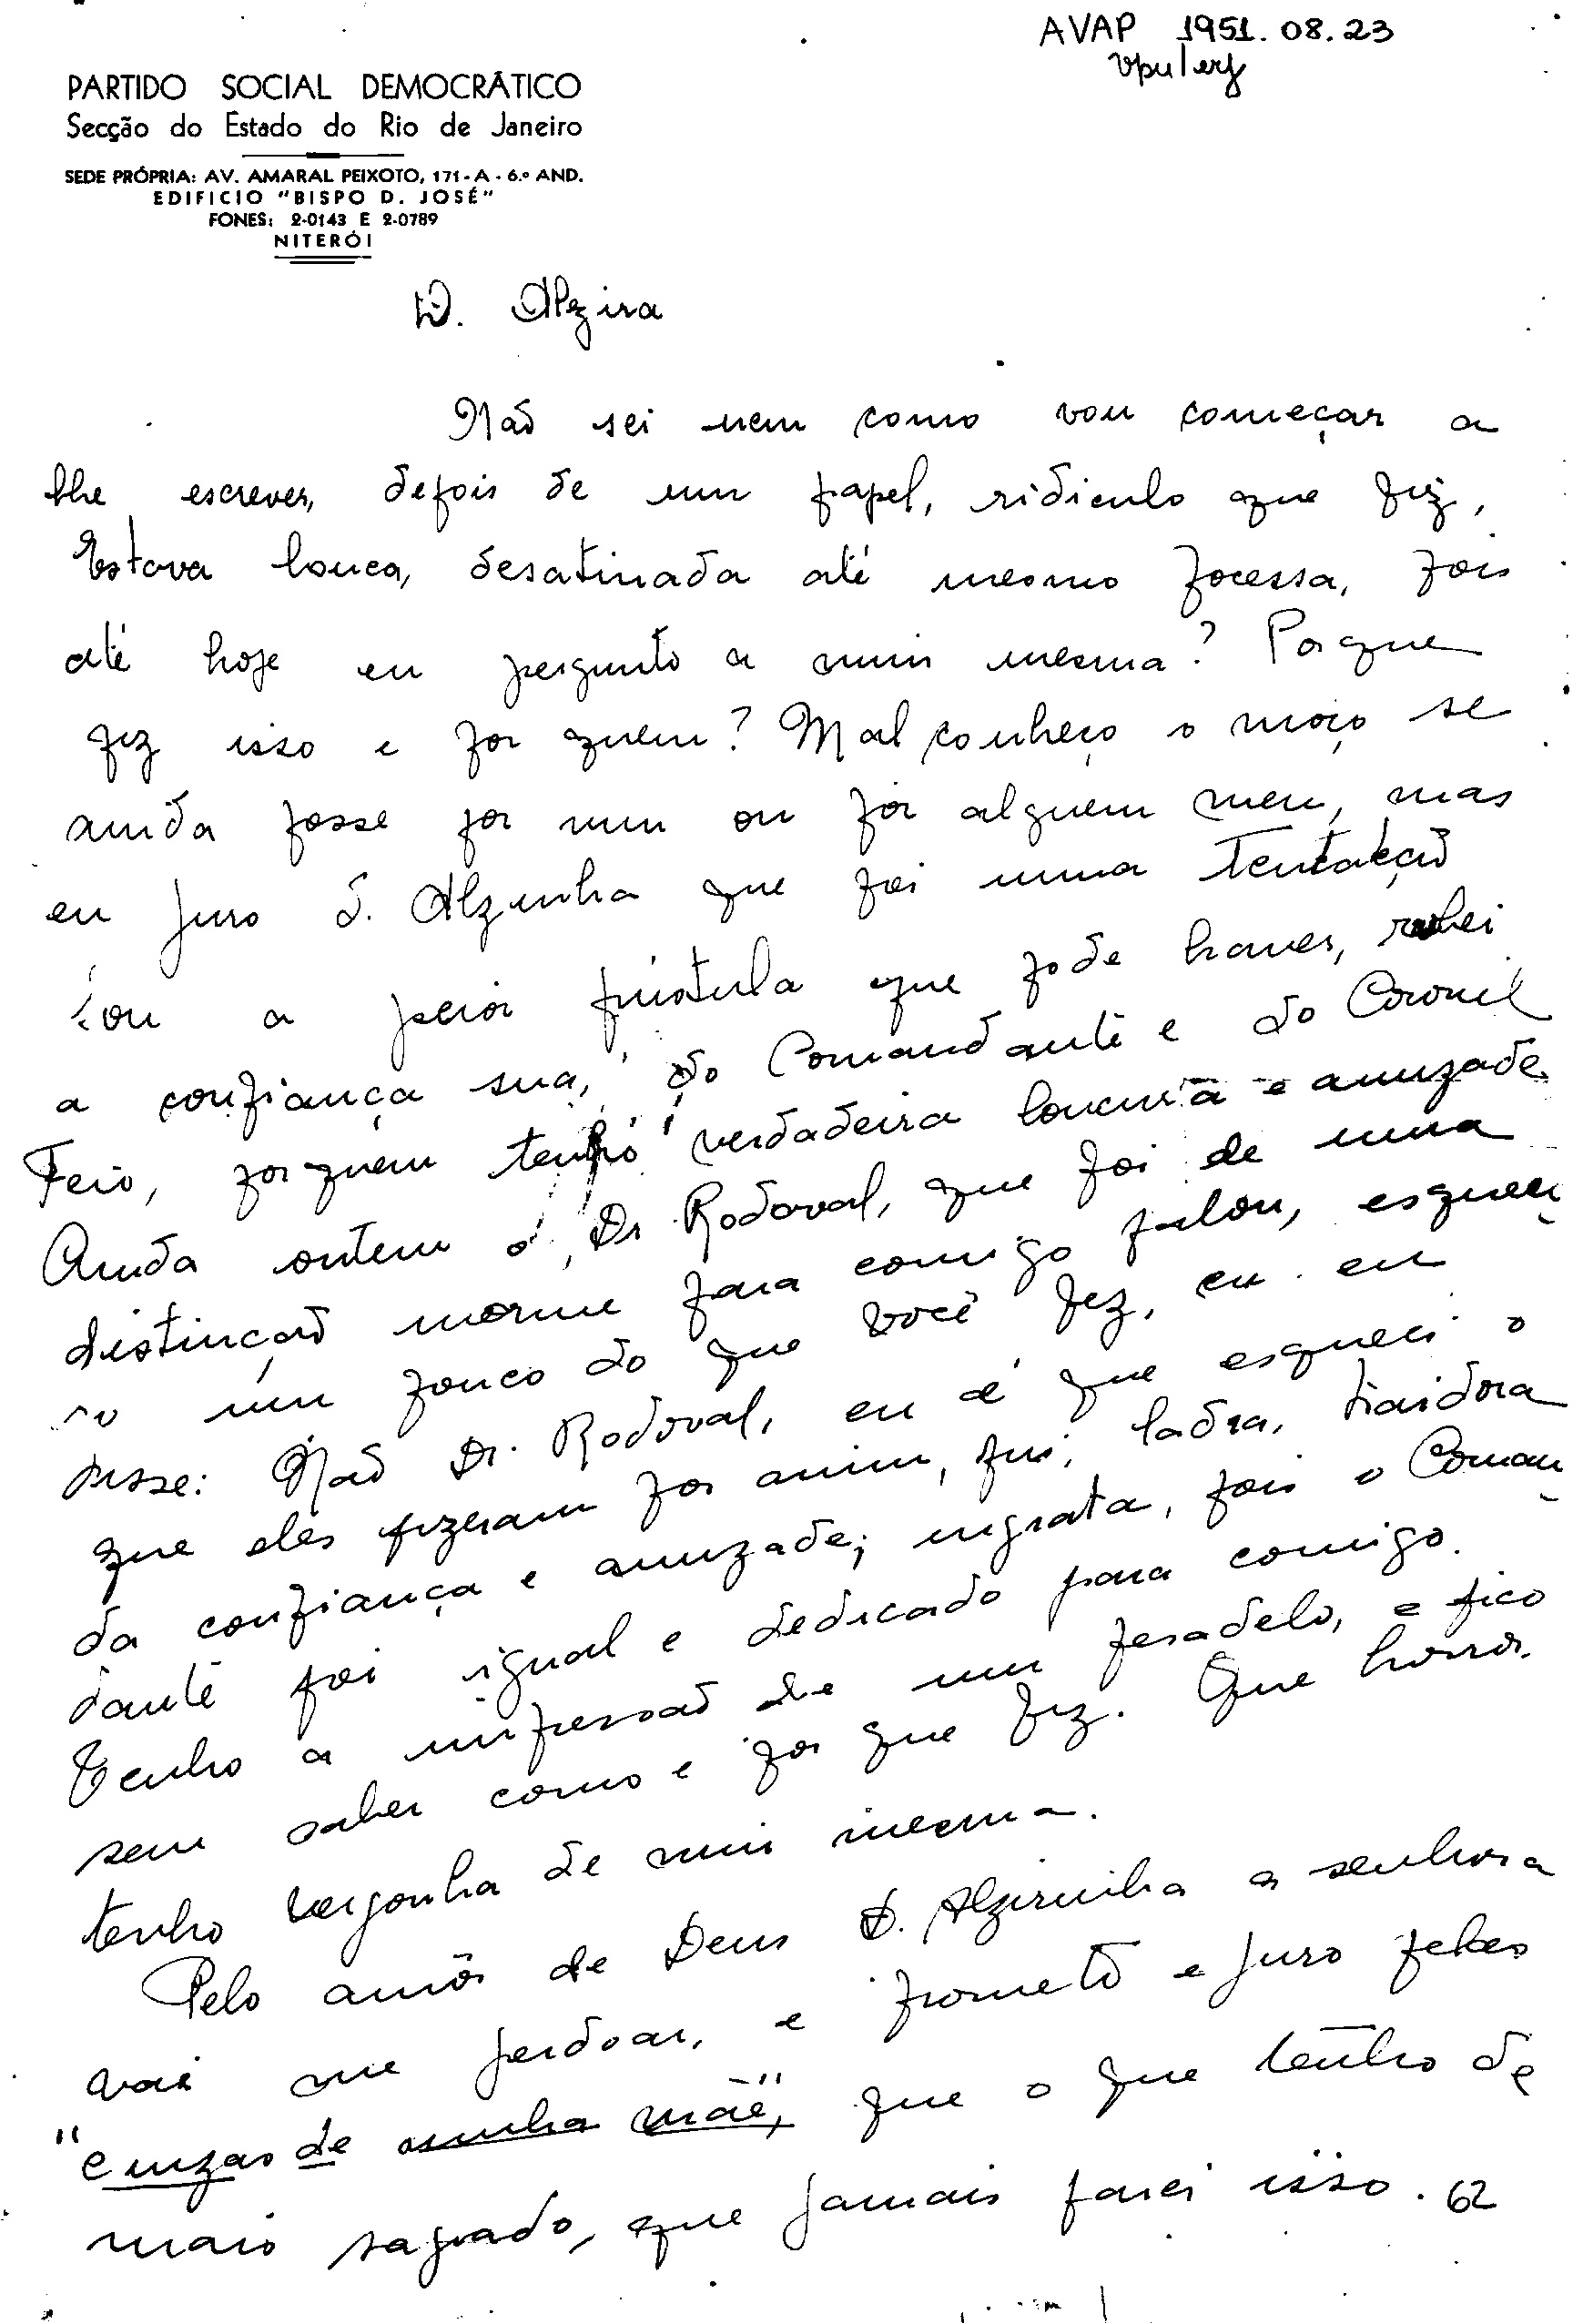 AVAP 1951.08.23
PARTIDO SOCIAL DEMOCRÁTICO
Secção do Estado do Rio de Janeiro
SEDE PRÓPRIA: AV. AMARAL PEIXOTO, 171-A - 6.º AND.
EDIFICIO "BISPO D. JOSÉ"
FONES: 2-0143 E 2-0789
NITERÓI
D. Alzira
Não sei nem como vou começar a
lhe escrever, depois de um papel, ridiculo que fiz,
Estava louca, desatinada até mesmo possessa, pois
até hoje eu pergunto a mim mesma? Porque
fiz isso e por quem? Mal conheço o moço se
ainda fosse por mim ou por alguem meu, mas
eu juro d. Alzinha que foi uma tentação
sou a peior pústula que pode haver, roubei
a confiança sua, do Comandante e do Coronel
Feio, por quem tenho verdadeira loucura e amizade.
Ainda ontem o Dr Rodoval, que foi de uma
distinção enorme para comigo falou, esqueci
um pouco do que você fez, eu
disse: Não Dr. Rodoval, eu é que esqueci o
que eles fizeram por mim, fui, ladra, traidora
da confiança e amizade; ingrata, pois o Coman
dante foi igual e dedicado para comigo.
Tenho a impressão de um pesadelo, e fico
sem saber como e por que fiz. Que horror.
tenho vergonha de mim mesma.
Pelo amôr de Deus D. Alzirinha a senhora
vai me perdoar, e prometo e juro pelas
"cinzas de minha mãe", que o que tenho de
mais sagrado, que jamais farei isso. 62